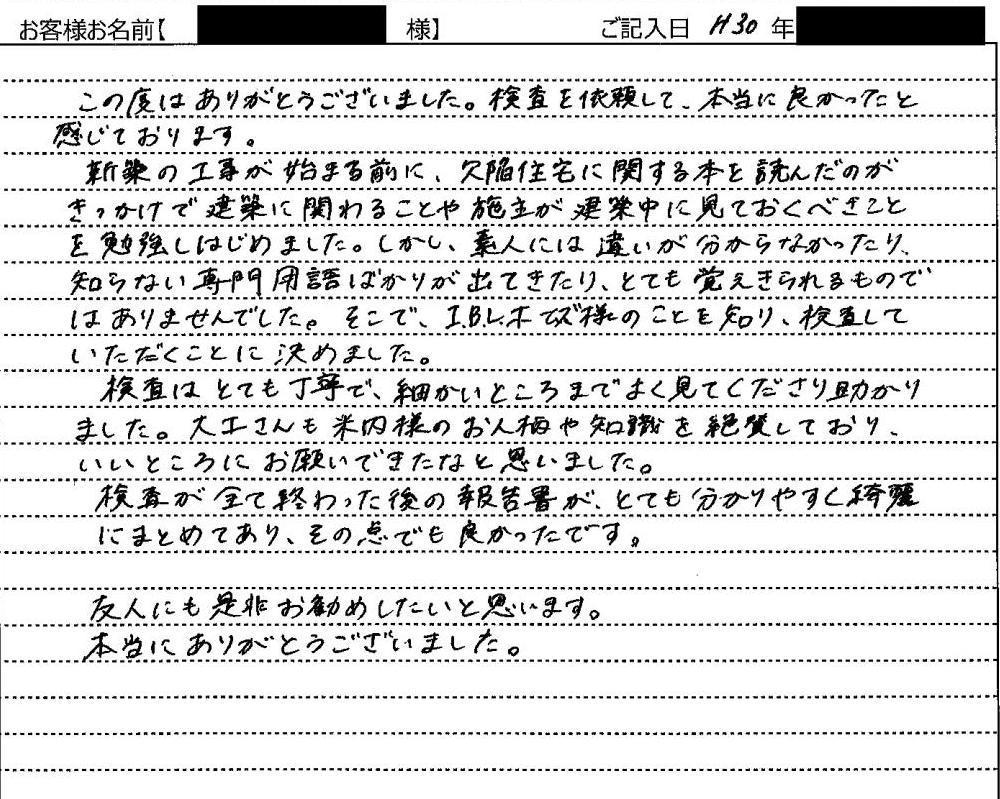 お客様お名前【 様】 ご記入日 H30年
この度はありがとうございました。検査を依頼して、本当に良かったと
感じております。
新築の工事が始まる前に、欠陥住宅に関する本を読んだのが
きっかけで建築に関わることや施主が建築中に見ておくべきこと
を勉強しはじめました。しかし、素人には違いが分からなかったり、
知らない専門用語ばかりが出てきたり、とても覚えきられるもので
はありませんでした。そこで、I.B.L.ホームズ様のことを知り、検査して
いただくことに決めました。
検査はとても丁寧で、細かいところまでよく見てくださり助かり
ました。大工さんも米内様のお人柄や知識を絶賛しており、
いいところにお願いできたなと思いました。
検査が全て終わった後の報告書が、とても分かりやすく綺麗
にまとめてあり、その点でも良かったです。
友人にも是非お勧めしたいと思います。
本当にありがとうございました。